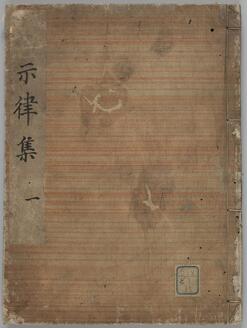 示律集
一